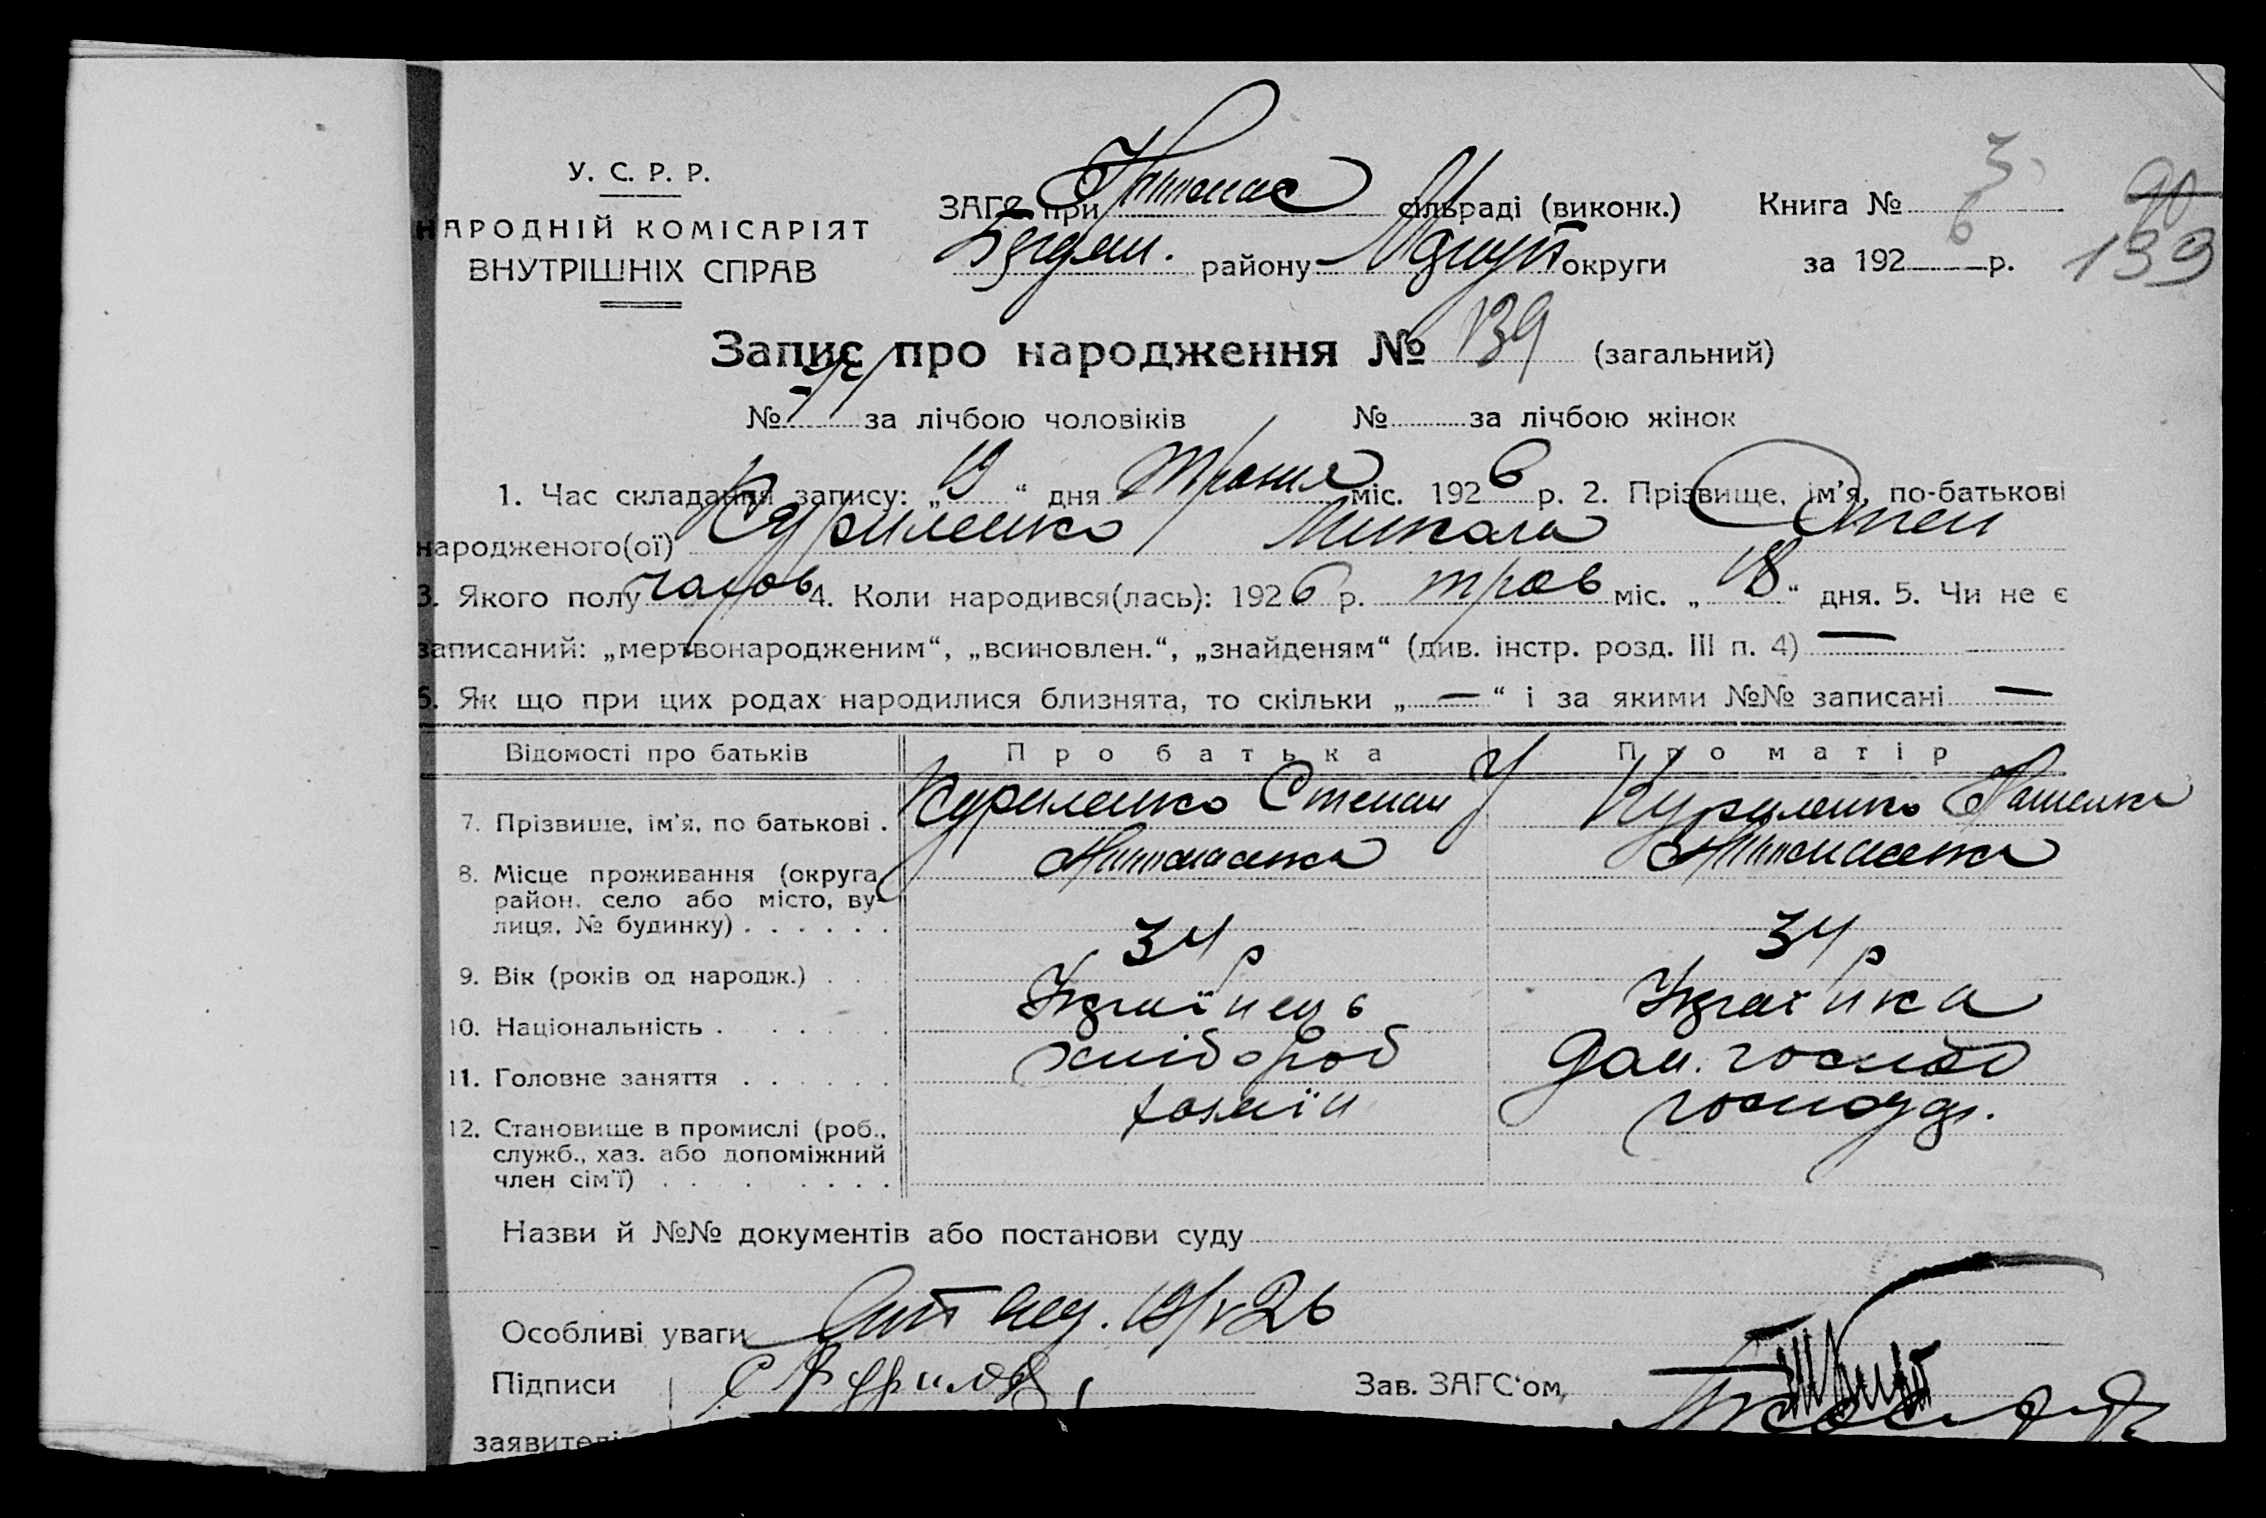 У. С. Р. Р.
НАРОДНІЙ КОМІСАРІЯТ
ВНУТРІШНІХ СПРАВ
ЗАГС при сільраді (виконк.)
району округи
Книга № 3
за 192 6 р.
90
139
Запис про народження № 139 (загальний)
№ за лічбою чоловіків № за лічбою жінок
1. Час складання запису: „19“ дня травня міс. 1926 р. 2. Прізвище, ім'я, по-батькові
народженого(ої) Куриленко Микола Степ
3. Якого полу чолов 4. Коли народився(лась): 1926 р. трав міс. „18“ дня. 5. Чи не є
записаний: „мертвонародженим“, „всиновлен.“, „знайденям“ (див. інстр. розд. III п. 4) —
6. Як що при цих родах народилися близнята, то скільки „—“ і за якими №№ записані —
Відомості про батьків Про батька Про матір
7. Прізвище, ім'я, по батькові . Куриленко Степан Куриленко
8. Місце проживання (округа,
район, село або місто, ву-
лиця, № будинку) . . . . . .
9. Вік (років од народж.) . . . 34 р 34 р
10. Національність . . . . . Українець Українка
11. Головне заняття . . . . . . хлібороб дом. господ
12. Становище в промислі (роб.,
служб., хаз. або допоміжний
член сім'ї) . . . . . . . хазяїн
Назви й №№ документів або постанови суду
Особливі уваги 19/V 26
Підписи
заявителів
Зав. ЗАГС'ом,